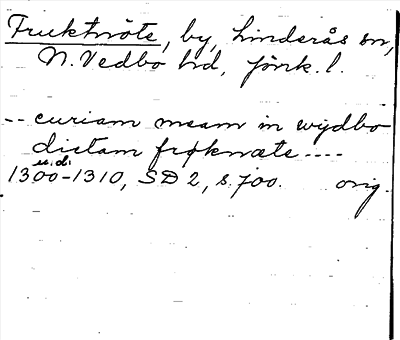 Fruktnöte, by, Linderås sn,
N. Vedbo hd, Jönk. l.
-- curiam meam in wydbo
dictam frøknæte ----
u.d.
1300-1310, SD 2, s. 700. orig.